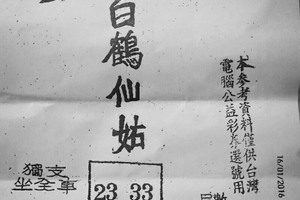 白鶴仙姑
本參考資料僅供台灣
電腦公益彩券選號用
16/01/2016
獨支
坐全車
23 33